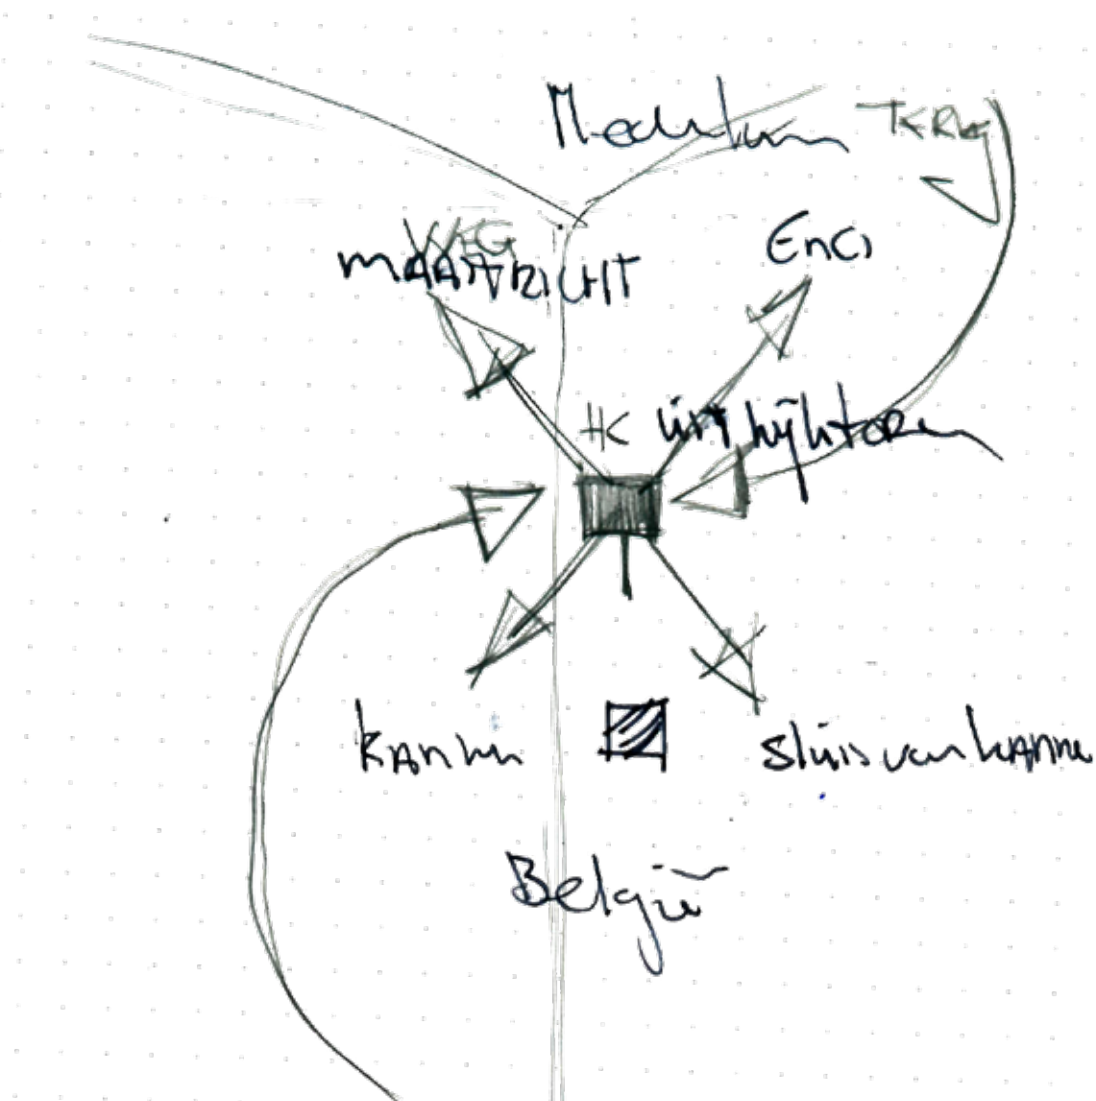 TERUG
WEG
MAASTRICHT
Enci
HK
uitkijktoren
Kanne
sluis van kanne
België